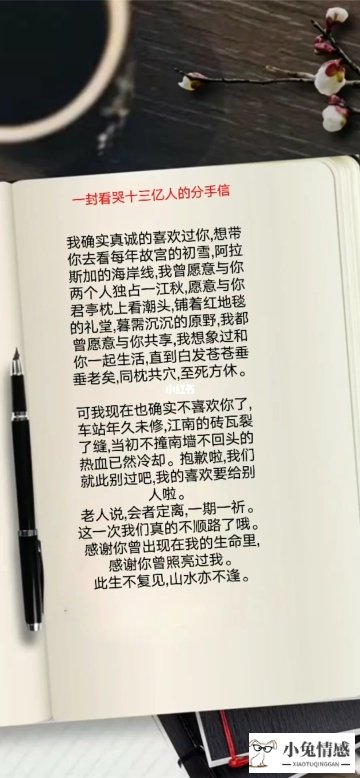 一封看哭十三亿人的分手信
我确实真诚的喜欢过你,想带
你去看每年故宫的初雪,阿拉
斯加的海岸线,我曾愿意与你
两个人独占一江秋,愿意与你
君亭枕上看潮头,铺着红地毯
的礼堂,暮霭沉沉的原野,我都
曾愿意与你共享,我想象过和
你一起生活,直到白发苍苍垂
垂老矣,同枕共穴,至死方休。
小红书
可我现在也确实不喜欢你了,
车站年久未修,江南的砖瓦裂
了缝,当初不撞南墙不回头的
热血已然冷却。抱歉啦,我们
就此别过吧,我的喜欢要给别
人啦。
老人说,会者定离,一期一祈。
这一次我们真的不顺路了哦。
感谢你曾出现在我的生命里,
感谢你曾照亮过我。
此生不复见,山水亦不逢。
小兔情感
XIAOTUQINGGAN